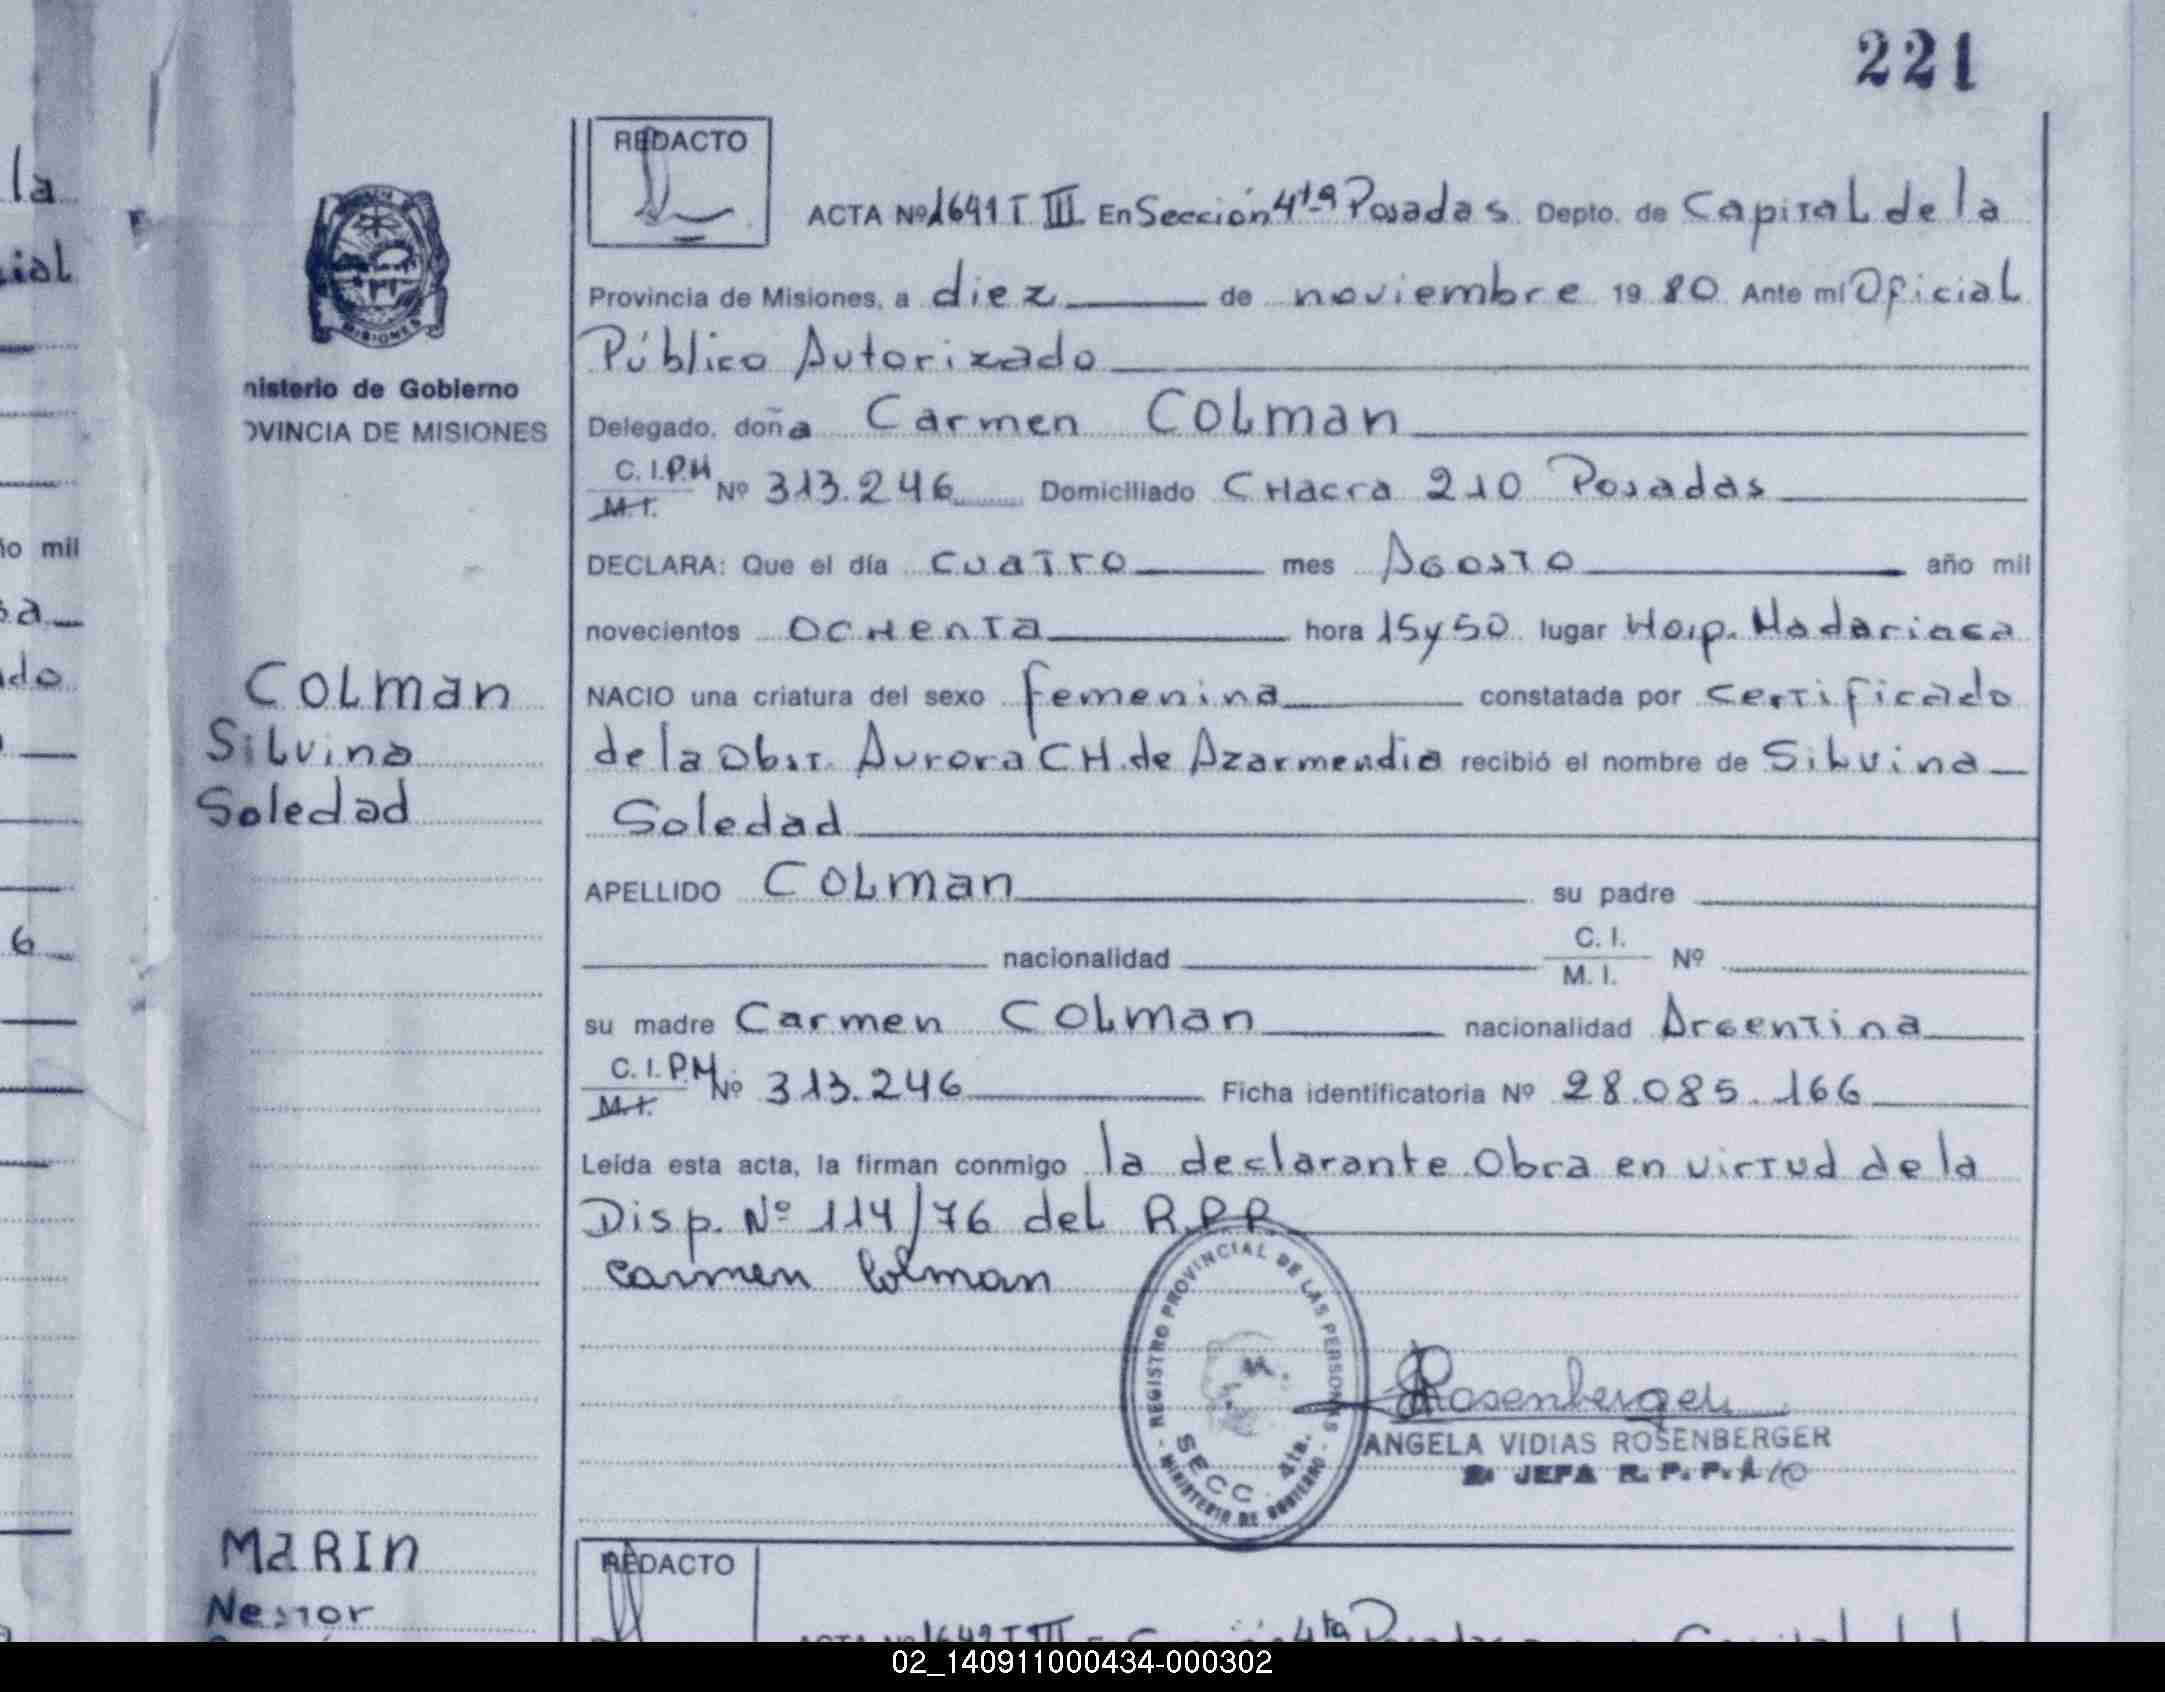 221
REDACTO
ACTA Nº 1641 T III En Sección 4ta Posadas Depto. de Capital de la
Provincia de Misiones, a diez de noviembre 1980 Ante mí Oficial
Público Autorizado
Delegado, doña Carmen COLman
C.I.P.M
M.I. Nº 313.246 Domiciliado CHacra 210 Posadas
DECLARA: Que el día cuatro mes Agosto año mil
novecientos OCHenta hora 15 y 50 lugar Hosp. Madariaga
NACIO una criatura del sexo femenina constatada por certificado
de la Obst. Aurora CH. de Azarmendia recibió el nombre de Silvina
Soledad
APELLIDO COLman su padre
nacionalidad C. I.
M. I. Nº
su madre Carmen COLman nacionalidad Argentina
C.I.P.M
M.I. Nº 313.246 Ficha identificatoria Nº 28.085.166
Leída esta acta, la firman conmigo la declarante Obra en virtud de la
Disp. Nº 114/76 del R.P.P.
Carmen Colman
REGISTRO PROVINCIAL DE LAS PERSONAS
SECC. 4ta.
MINISTERIO DE GOBIERNO
Rosenberger
ANGELA VIDIAS ROSENBERGER
JEFA R. P. P.
MISIONES
nisterio de Gobierno
OVINCIA DE MISIONES
COLman
Silvina
Soledad
MaRIn
Nestor
REDACTO
la
ial
ño mil
sa
do
6
02_140911000434-000302